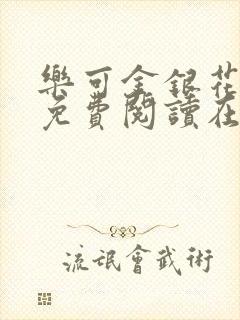 樂可金銀花
免費閱讀在
流氓會武術